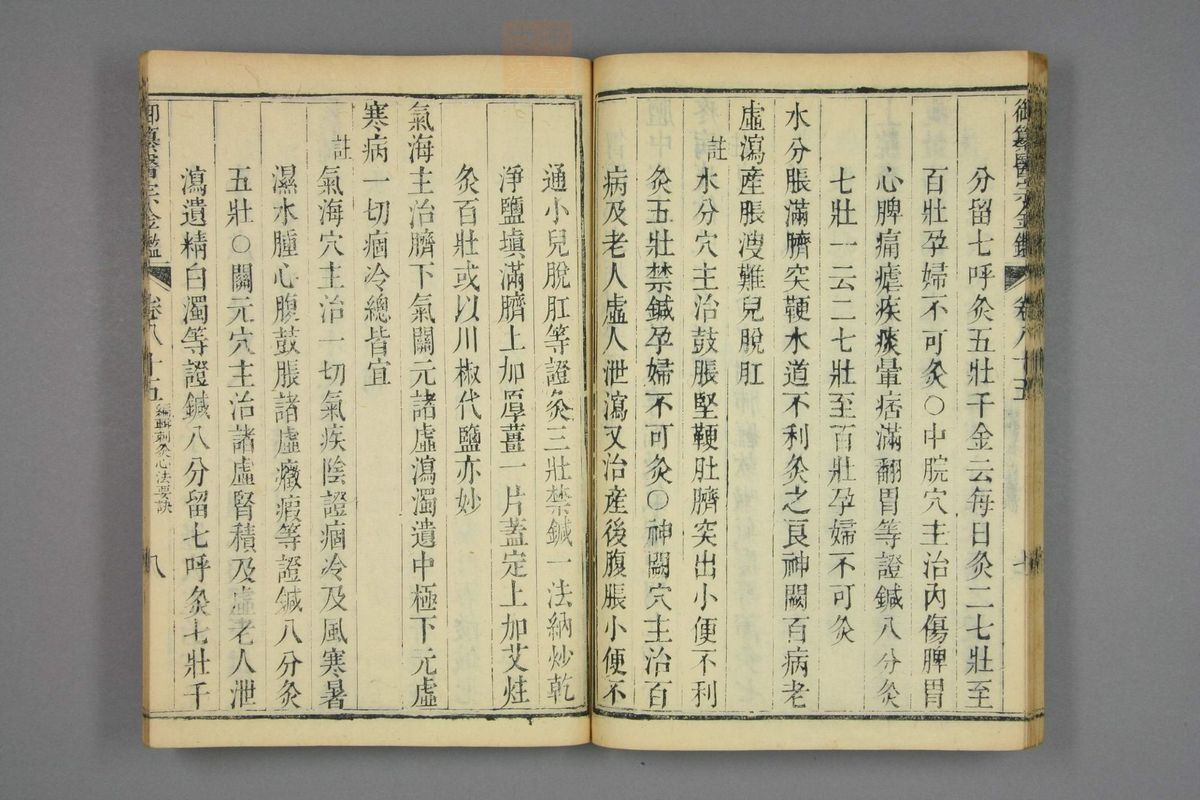 御纂醫宗金鑑
卷八十五
七
分留七呼灸五壯千金云每日灸二七壯至
百壯孕婦不可灸○中脘穴主治內傷脾胃
心脾痛瘧疾痰暈痞滿翻胃等證鍼八分灸
七壯一云二七壯至百壯孕婦不可灸
水分脹滿臍突鞕水道不利灸之良神闕百病老
虛瀉產脹溲難兒脫肛
註
水分穴主治鼓脹堅鞕肚臍突出小便不利
灸五壯禁鍼孕婦不可灸○神闕穴主治百
病及老人虛人泄瀉又治產後腹脹小便不
通小兒脫肛等證灸三壯禁鍼一法納炒乾
淨鹽塡滿臍上加厚薑一片蓋定上加艾炷
灸百壯或以川椒代鹽亦妙
氣海主治臍下氣關元諸虛瀉濁遺中極下元虛
寒病一切痼冷總皆宜
註
氣海穴主治一切氣疾陰證痼冷及風寒暑
濕水腫心腹鼓脹諸虛癥瘕等證鍼八分灸
五壯○關元穴主治諸虛腎積及虛老人泄
瀉遺精白濁等證鍼八分留七呼灸七壯千
御纂醫宗金鑑
卷八十五
編輯刺灸心法要訣
八